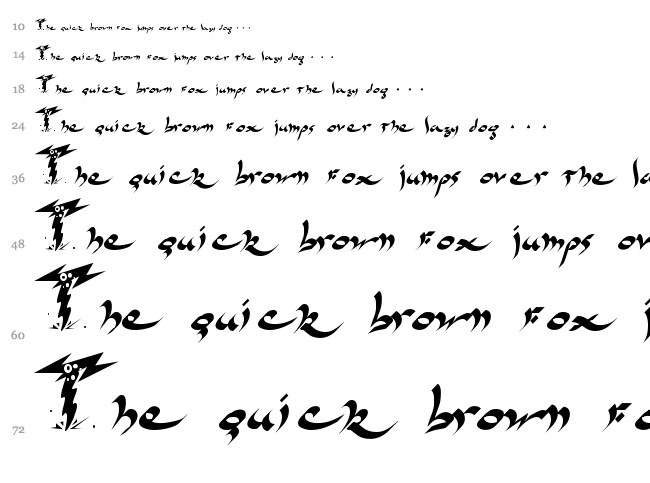 10 The quick brown fox jumps over the lazy dog . . .
14 The quick brown fox jumps over the lazy dog . . .
18 The quick brown fox jumps over the lazy dog . . .
24 The quick brown fox jumps over the lazy dog . . .
36 The quick brown fox jumps over the la
48 The quick brown fox jumps ov
60 The quick brown fox j
72 The quick brown fo